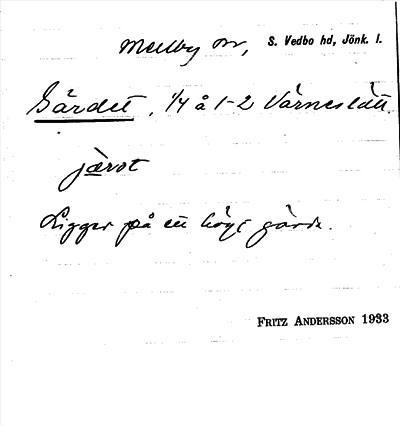 Mellby sn, S. Vedbo hd, Jönk. l.
Gärdet, 1/4 å 1-2 Värneslätt.
jærot
Ligger på en högt gärde.
FRITZ ANDERSSON 1933